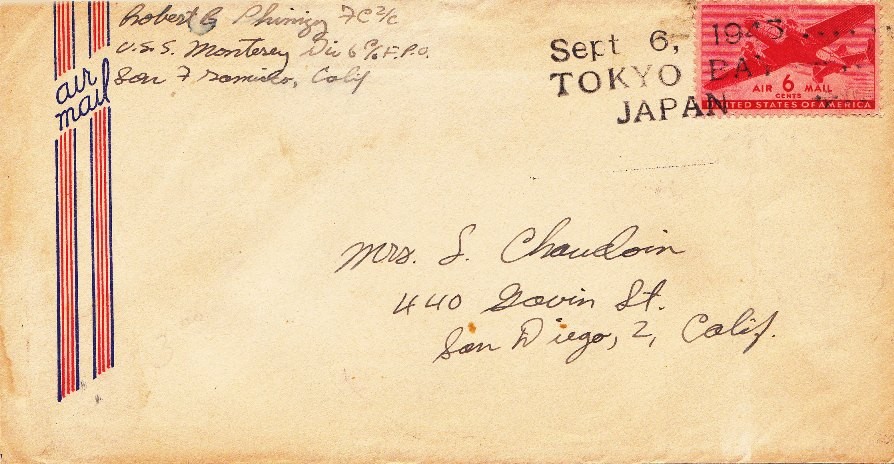 Robert G Phinizy FC 2/c
U.S.S. Monterey Div 6 c/o F.P.O.
San Francisco, Calif
air
mail
Sept 6, 1945
TOKYO BAY
JAPAN
AIR 6 MAIL
CENTS
UNITED STATES OF AMERICA
Mrs. S. Chaudoin
440 Gavin St.
San Diego, 2, Calif.